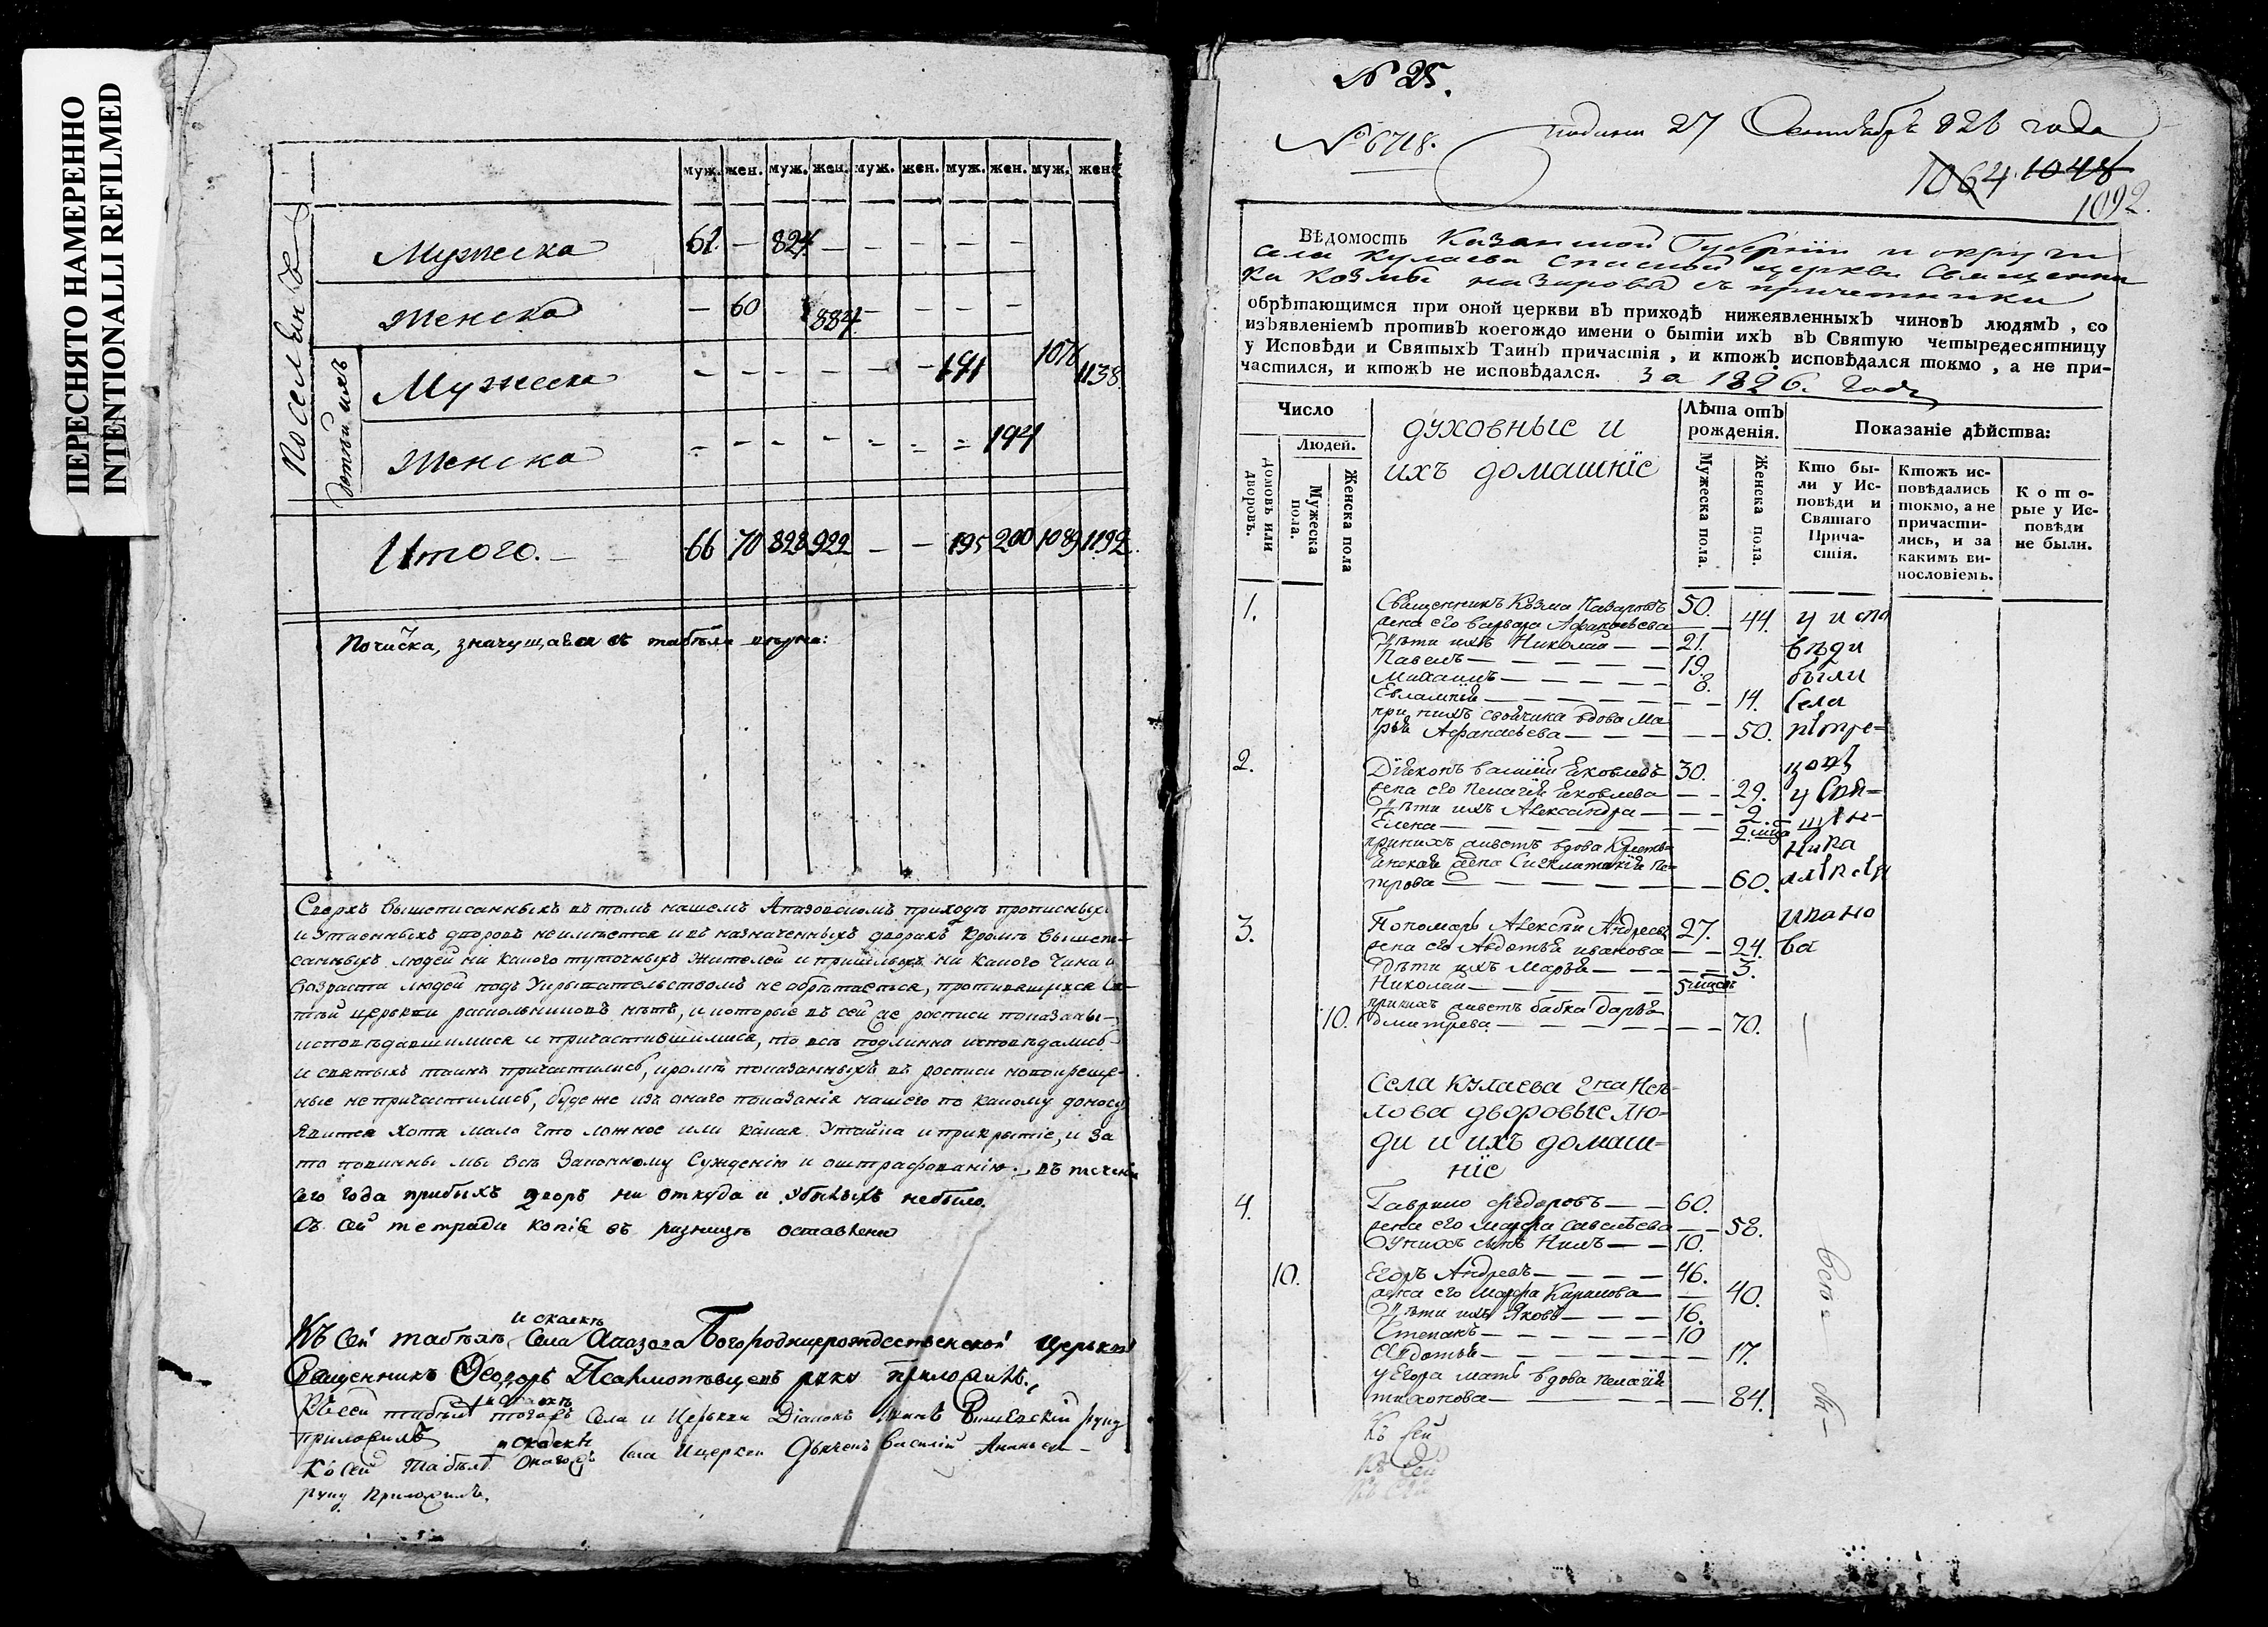 ПЕРЕСНЯТО НАМЕРЕННО
INTENTIONALLI REFILMED
муж. жен. муж. жен. муж. жен. муж. жен. муж. жен.
Поселянъ
Мужеска 62. — 824. — — — — —
Женска — 60 884 — — — —
детей ихъ
Мужеска — — — — — — 191 1076 1138.
Женска — — — — — — — 194
Итого. — 66 70 828 922 — — 195 200 1089 1192.
Почиска, значущаяся въ табѣли
Сверхъ вышеписанныхъ въ томъ нашемъ Апазовскомъ приходѣ прописныхъ
и утаенныхъ дворовъ неимѣется и въ назначенныхъ дворахъ кромѣ вышепи-
санныхъ людей ни какого туточныхъ жителей и пришлыхъ ни какого чина и
возраста людей подъ укрывательствомъ не обрѣтается, противящихся свя-
тѣй церькви раскольниковъ нѣтъ, и которые въ сей же росписи показаны —
исповѣдавшимися и причастившимися, то всѣ подлинно исповѣдались —
и святыхъ таинъ причастились, кромѣ показанныхъ въ росписи
ные непричастились, будеже изъ онаго показанія нашего по какому доносу
явится хотя мало что ложное или какая утайка и прикрытіе, и за
то повинны мы всѣ законному сужденію и оштрафованію. въ течени
сего года прибылъ дворъ ни откуда и убылыхъ небыло.
Съ сей тетради копія въ ризницѣ оставлена
и скаскѣ
Къ сей табѣлѣ села Апазова Богородицерождественской церькви
Священникъ Ѳеодоръ Псалмопѣвцевъ руку приложилъ.
и скаскѣ
Къ сей табѣли тогожъ села и церькви Діаконъ руку
приложилъ
и скаскѣ
Къ сей табѣли оногожъ села и церкви Дьячекъ Василій Ананьев
руку приложилъ.
N 25.
№ 6718. подана 27 Сентября 826 года
1064 1048
1092.
Вѣдомость Казанской Губерніи и округи
села Кулаева Спаской церкви Священни
ка Козмы Назарова съ причетники
обрѣтающимся при оной церкви въ приходѣ нижеявленныхъ чиновъ людямъ, со
изъявленіемъ противъ коегождо имени о бытіи ихъ въ Святую четыредесятницу
у Исповѣди и Святыхъ Таинъ причастія, и ктожъ исповѣдался токмо, а не при-
частился, и ктожъ не исповѣдался. за 1826. годъ
Число
Людей.
Домовъ или дворовъ.
Мужеска пола.
Женска пола
духовные и
ихъ домашніе
Лѣта отъ рожденія.
Мужеска пола.
Женска пола.
Показаніе дѣйства:
Кто бы-
ли у Ис-
повѣди и
Святаго
Прича-
стія.
Ктожъ ис-
повѣдались
токмо, а не
причасти-
лись, и за
какимъ ви-
нословіемъ.
Кото-
рые у Ис-
повѣди
не были.
1. Священникъ Козма Назаровъ 50.
жена его Варвара Афанасьева — 44.
Дѣти ихъ Николай — — 21.
Павелъ — — — — — 19.
Михаилъ — — — — — 8.
Евлампія — — — — — 14.
при нихъ свойчина вдова Ма
рья Афанасьева — — — — 50.
у испо
вѣди
были
села
2. Діяконъ Василій Яковлевъ 30.
жена его Пелагія Яковлева — — 29.
Дѣти ихъ Александра — — — 2.
Елена — — — — — — 2. мца
принихъ живетъ вдова
жена Сигклитикія Пе-
трова — — — — — 60.
у Свя-
щен-
ника
Алексѣя
Ивано
ва
3. Пономарь Алексѣй Андреевъ 27.
жена его Авдотья Иванова — — 24.
дѣти ихъ Марья — — — — 3.
Николай — — — — 5 мцовъ
принихъ живетъ бабка Дарья
10. Дмитрева — — — — — 70.
Села Кулаева
дворовые лю-
ди и ихъ домаш-
ніе
4. Гаврило Федоровъ — — 60.
жена его Марфа Савельева — — 58.
У нихъ сынъ Нилъ — — 10.
10. Егоръ Андревъ — — — — 46.
жена его Марфа Кирилова — — 40.
Дѣти ихъ Яковъ — — — 16.
Степанъ — — — — — 10
Авдотья — — — — — 17.
у Егора мать вдова Пелагія
Тихонова — — — — — 84.
Къ сей
Къ сей
Къ сей